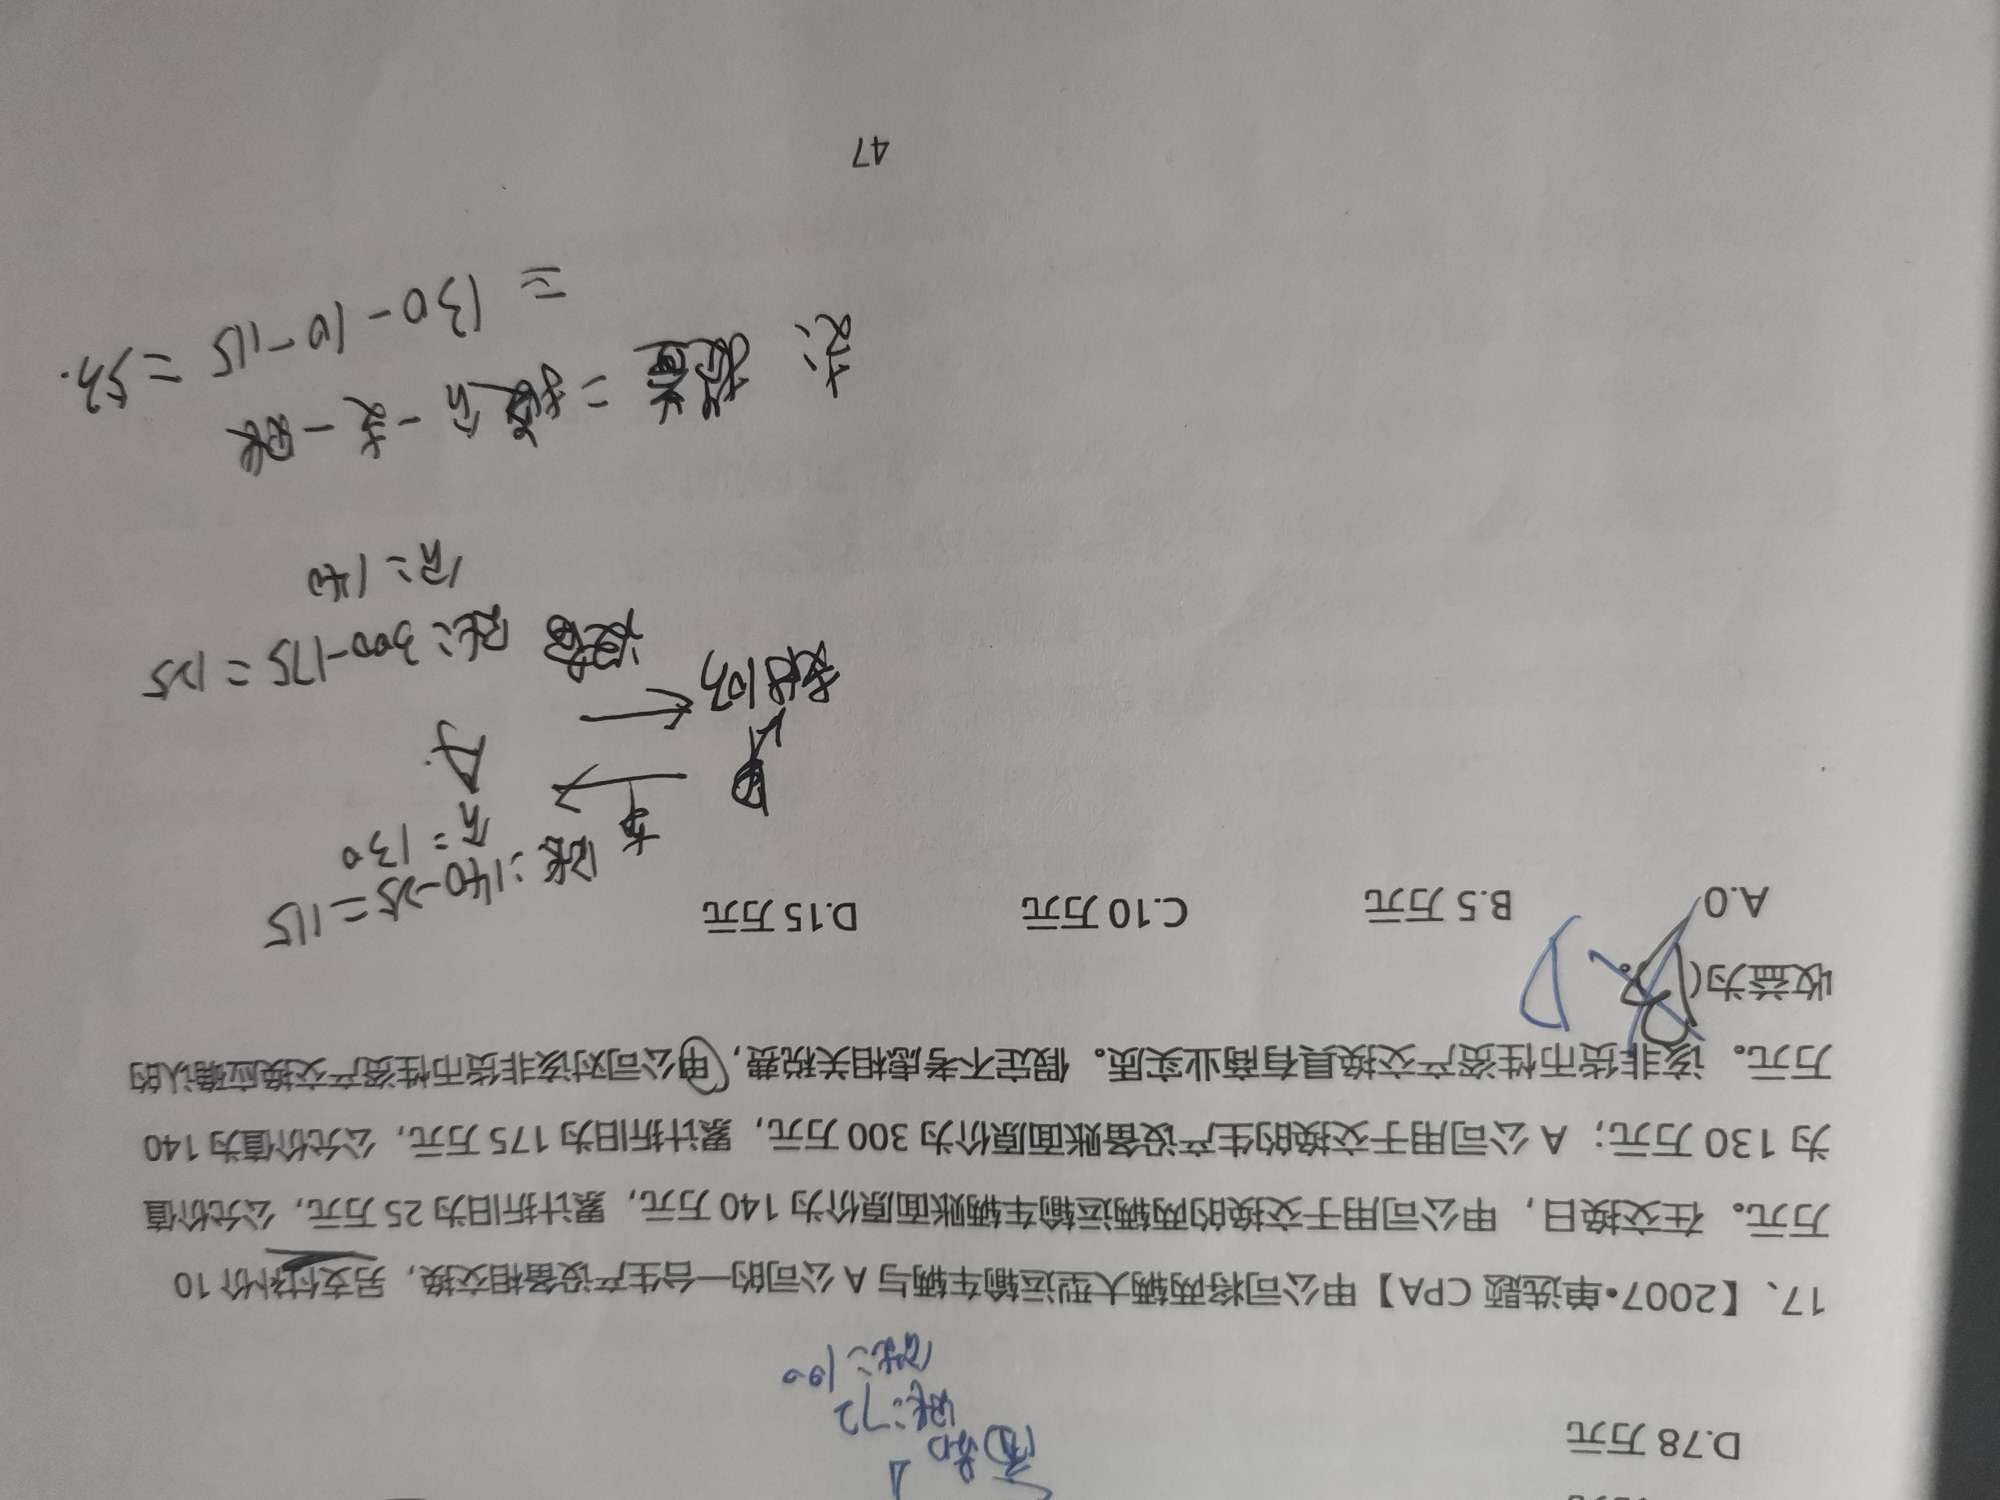 D.78万元
账:72
账:100
17、【2007•单选题 CPA】甲公司将两辆大型运输车辆与A公司的一台生产设备相交换，另支付补价10
万元。在交换日，甲公司用于交换的两辆运输车辆账面原价为140万元，累计折旧为25万元，公允价值
为130万元；A公司用于交换的生产设备账面原价为300万元，累计折旧为175万元，公允价值为140
万元。该非货币性资产交换具有商业实质。假定不考虑相关税费，甲公司对该非货币性资产交换应确认的
收益为( )。 D
A.0 B.5万元 C.10万元 D.15万元
车 账:140-25=115
公=130
甲 A
支付10万
设备 账:300-175=125
公:140
支: 损益=换公-支-账
=130-10-115=5万.
47